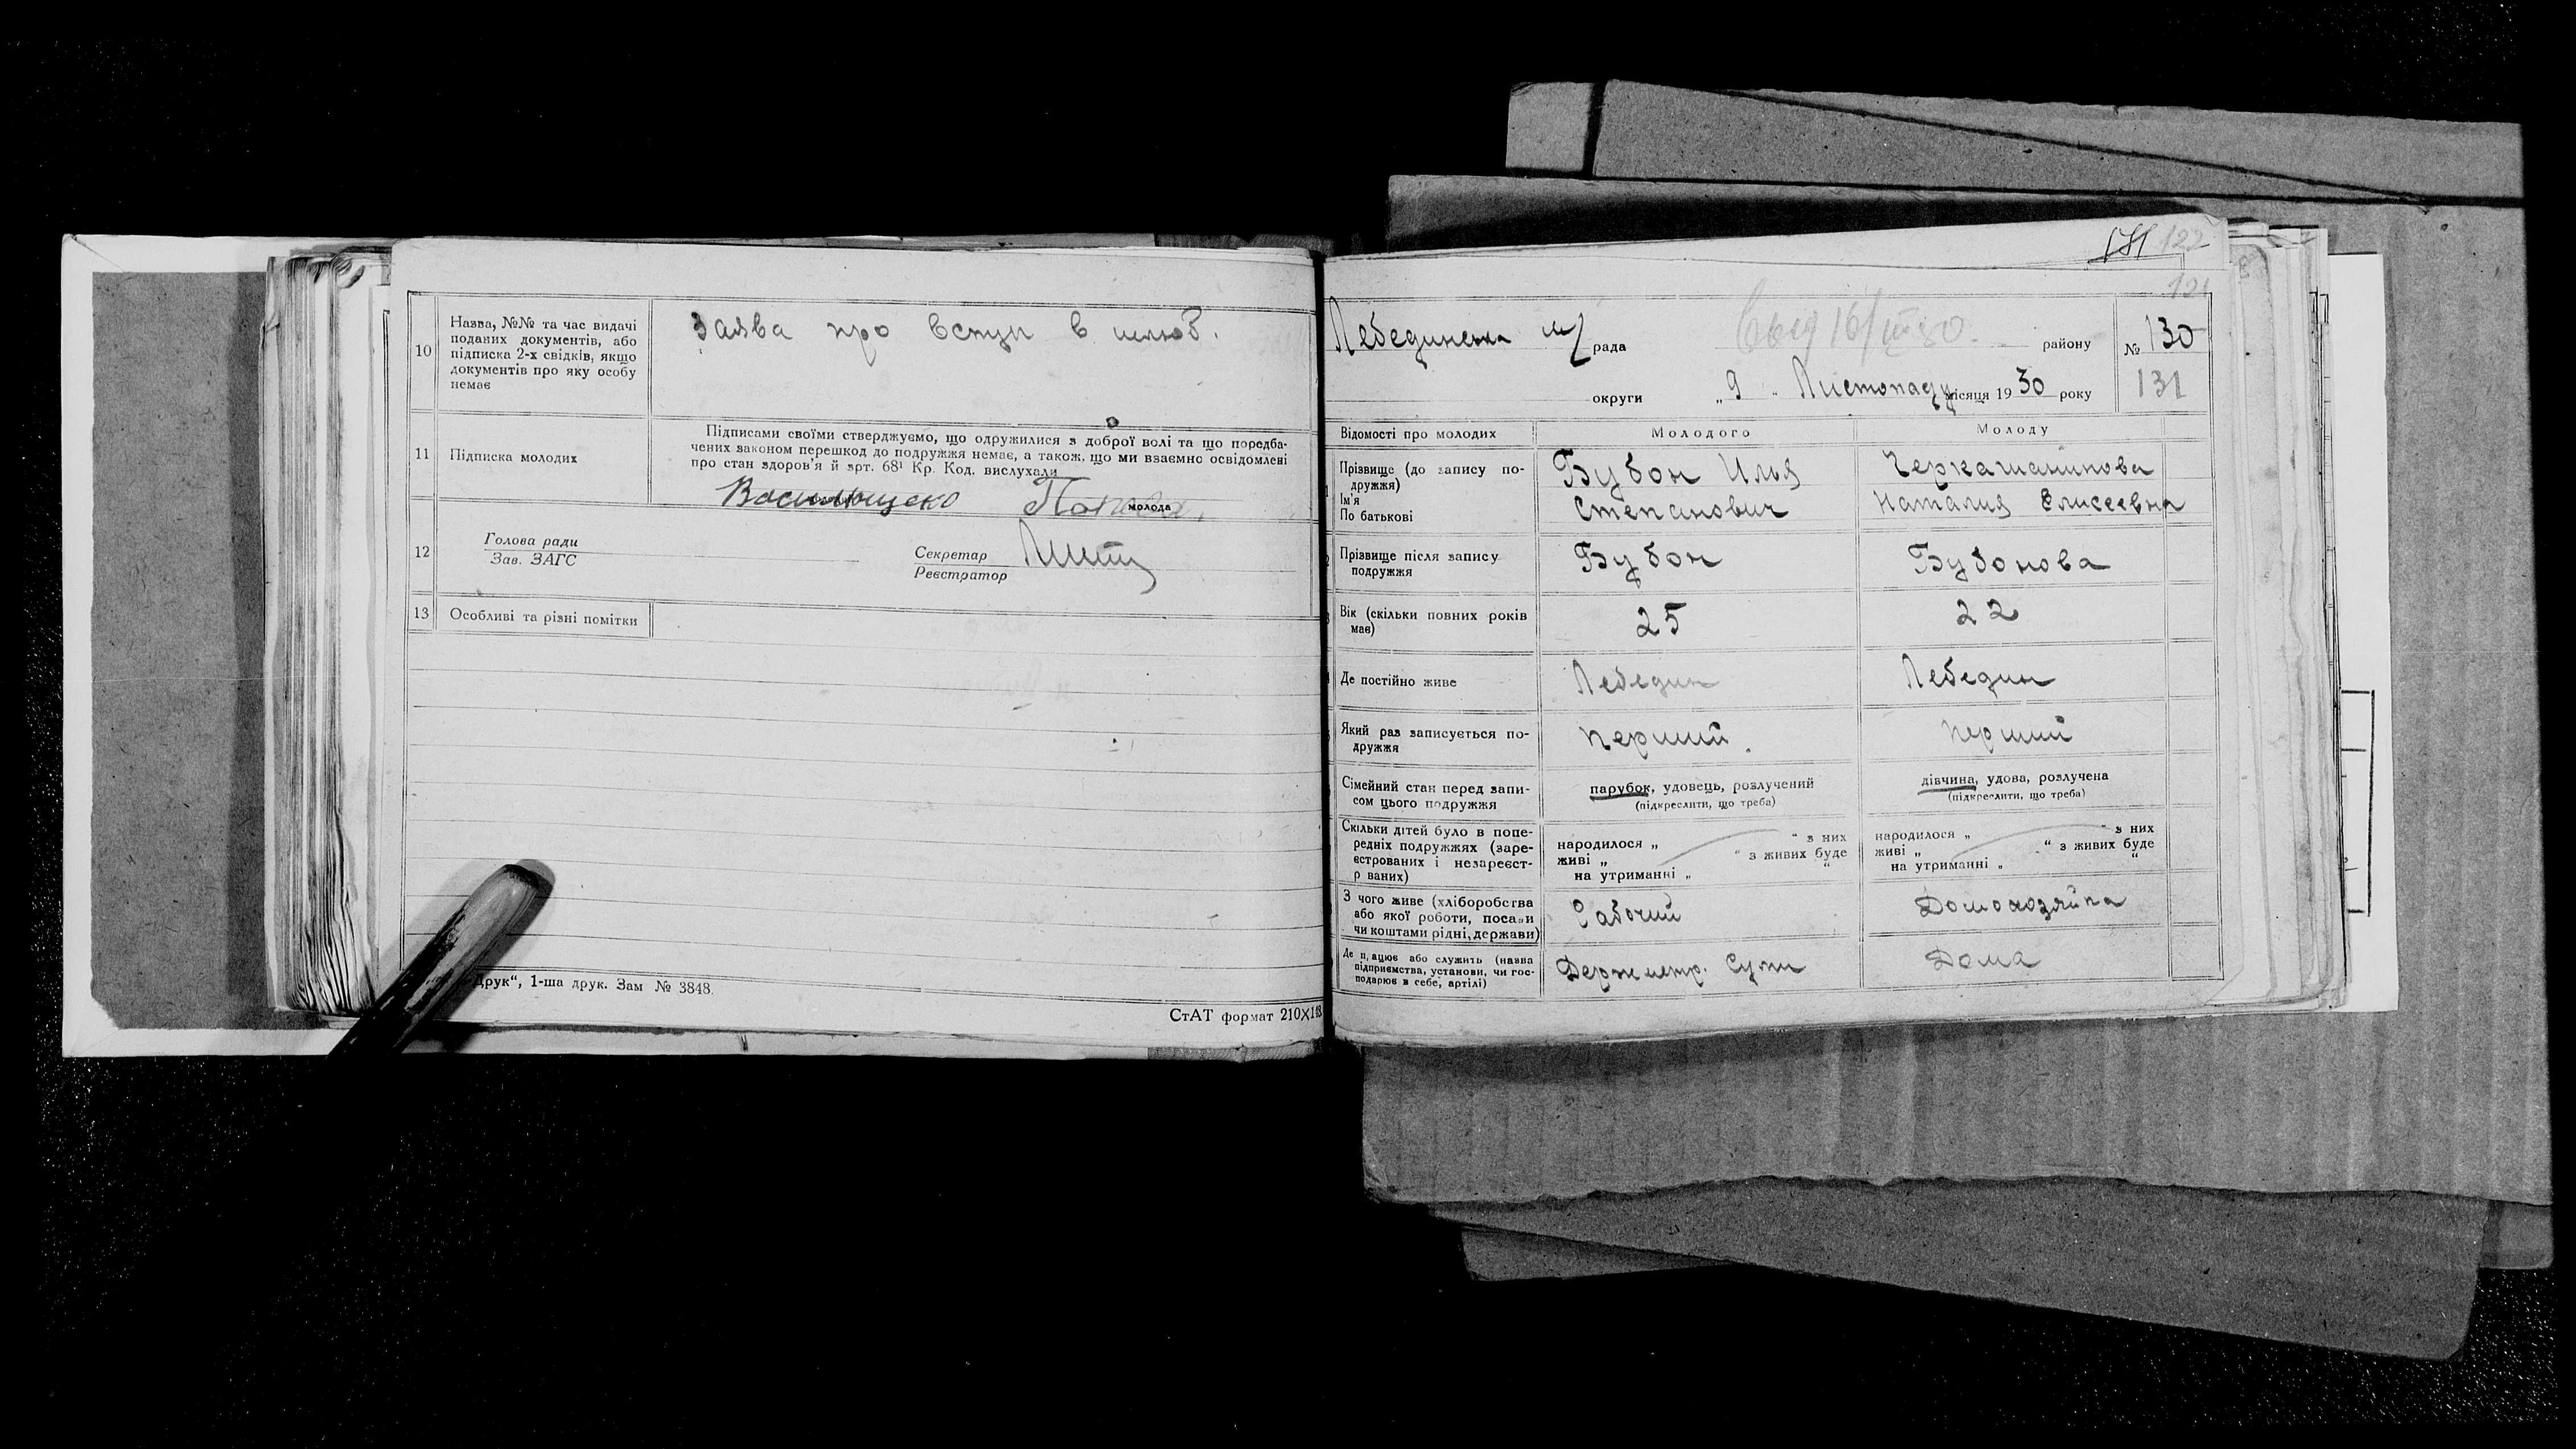 10
Назва, №№ та час видачі
поданих документів, або
підписка 2-х свідків, якщо
документів про яку особу
немає
Заява про вступ в шлюб.
11
Підписка молодих
Підписами своїми стверджуємо, що одружилися з доброї волі та що передба-
чених законом перешкод до подружжя немає, а також, що ми взаємно освідомлені
про стан здоров'я й арт. 68¹ Кр. Код. вислухали
молода
12
Голова ради
Зав. ЗАГС
Секретар
Реєстратор
13
Особливі та різні помітки
Друк", 1-ша друк. Зам № 3848.
СтАТ формат 210X148
122
121
Лебединська м/ рада
району
№ 130
131
округи „ 9 " Листопаду місяця 1930 року
Відомості про молодих
Молодого
Молоду
Прізвище (до запису по-
дружжя)
Ім'я
По батькові
Бубон Илья
Степанович
Черкашанинова
Наталия Елисеевна
Прізвище після запису
подружжя
Бубон
Бубонова
Вік (скільки повних років
має)
25
22
Де постійно живе
Лебедин
Лебедин
Який раз записується по-
дружжя
перший.
перший
Сімейний стан перед запи-
сом цього подружжя
парубок, удовець, розлучений
(підкреслити, що треба)
дівчина, удова, розлучена
(підкреслити, що треба)
Скільки дітей було в попе-
редніх подружжях (заре-
єстрованих і незареєст-
р ваних)
народилося „ " з них
живі „ " з живих буде
на утриманні „ "
народилося „ " з них
живі „ " з живих буде
на утриманні „ "
З чого живе (хліборобства
або якої роботи, посади
чи коштами рідні, держави)
Рабочий
Домохозяйка
Де працює або служить (назва
підприємства, установи, чи гос-
подарює в себе, артілі)
Суми
Дома